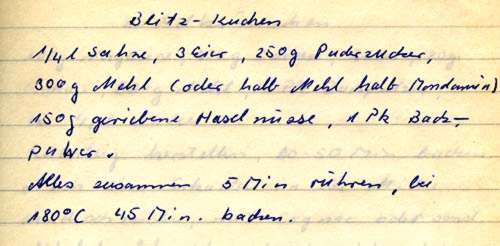 Blitz-Kuchen
1/4 l Sahne, 3 Eier, 250g Puderzucker,
300g Mehl (oder halb Mehl halb Mondamin)
150g geriebene Haselnüsse, 1 Pk Back-
pulver.
Alles zusammen 5 Min rühren, bei
180°C 45 Min. backen.